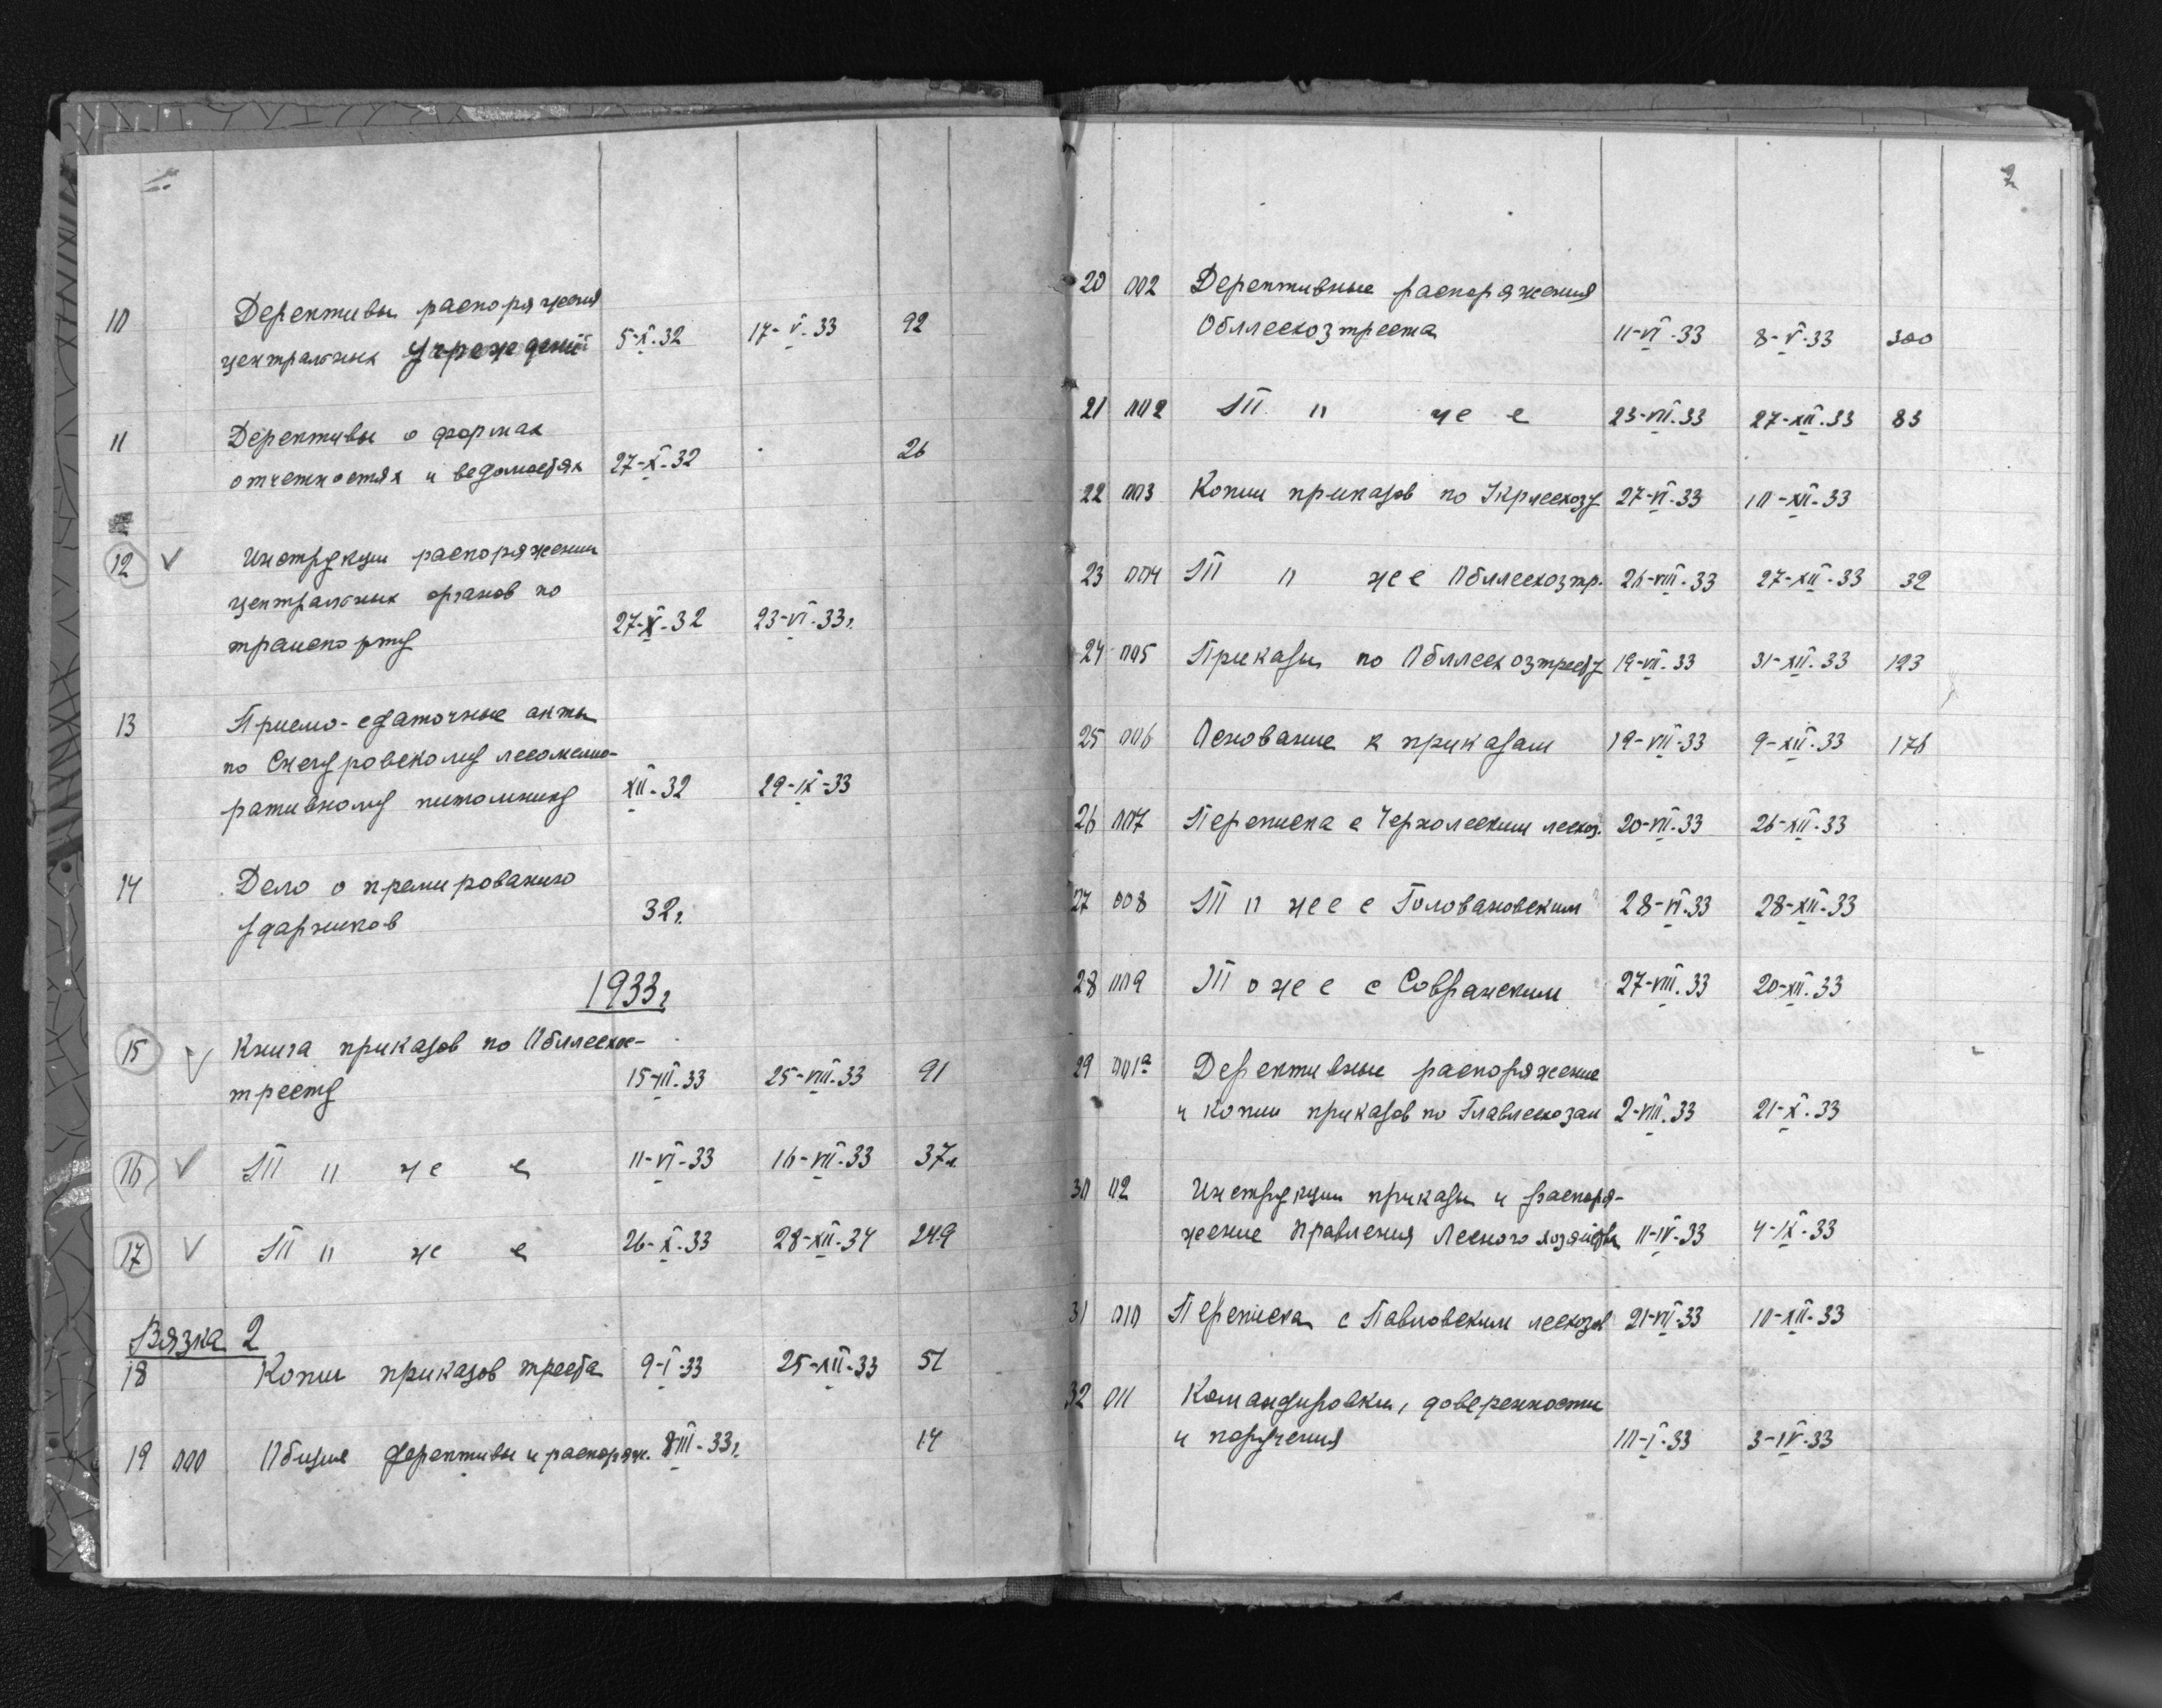 10 Дерективы распоряжения
центральных учреждений 5-X-32 17-V-33 92
11 Дерективы о формах
отчетностях и ведомостях 27-X-32 26
12 V Инструкции распоряжении
центральных органов по
транспорту 27-X-32 23-VI-33г.
13 Приемо-сдаточные акты
по Снегуровскому лесомелио-
ративному питомнику XII-32 29-IX-33
14 Дело о премированию
ударников 32г.
1933г
15 V Книга приказов по Обллесхоз-
тресту 15-III-33 25-VIII-33 91
16 V То же 11-VI-33 16-VII-33 37л.
17 V То же 26-X-33 28-XII-34 249
Вязка 2
18 Копии приказов треста 9-I-33 25-XII-33 51
19 000 Общие дерективы и распоряж. 8III-33г. 14
2
20 002 Дерективные распоряжения
Обллесхозтреста 11-VI-33 8-V-33 300
21 002 То же 23-VII-33 27-XII-33 83
22 003 Копии приказов по Укрлесхозу 27-VI-33 10-XII-33
23 004 То же Обллесхозтр. 26-VIII-33 27-XII-33 32
24 005 Приказы по Обллесхозтресту 19-VII-33 31-XII-33 123
25 006 Основание к приказам 19-VII-33 9-XII-33 176
26 007 Переписка с Чернолеским лесхоз. 20-VII-33 26-XII-33
27 008 То же с Головановским 28-VI-33 28-XII-33
28 009 То же с Савранским 27-VIII-33 20-XII-33
29 001а Дерективные распоряжение
и копии приказов по Главлесхозам 2-VIII-33 21-X-33
30 02 Инструкции приказы и распоря-
жение Правления Лесного хозяйства 11-IV-33 4-IX-33
31 010 Переписка с Павловским лесхозом 21-VI-33 10-XII-33
32 011 Командировки, доверенности
и поручения 10-I-33 3-IV-33